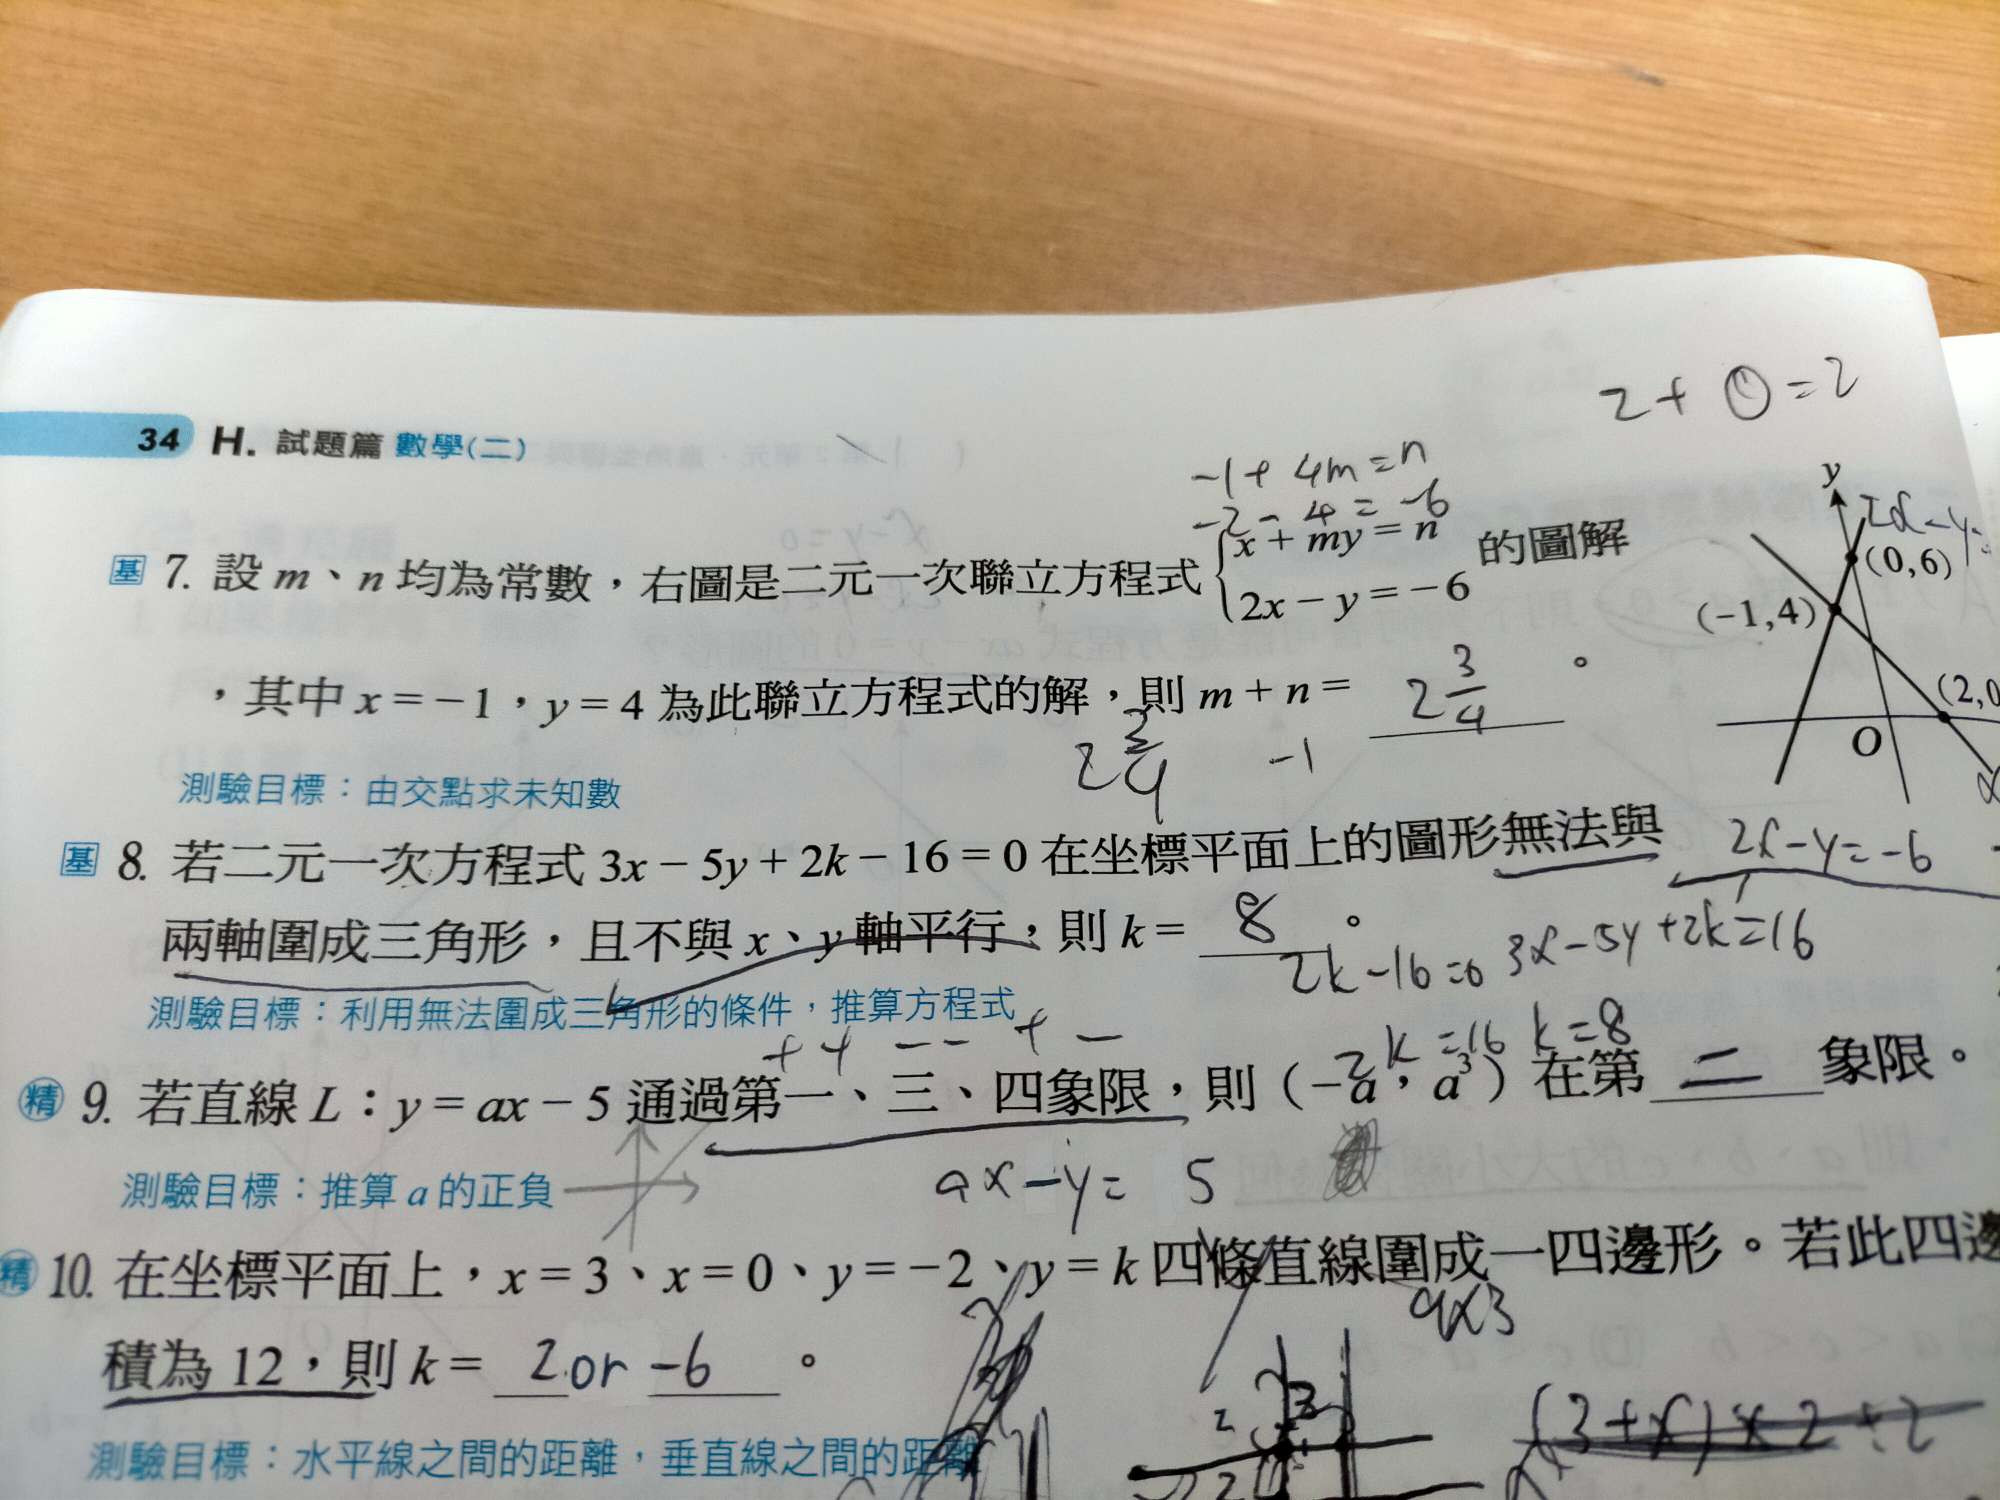 34 H. 試題篇 數學(二)
2 + 0 = 2
-1 + 4m = n
-2 - 4 = -6
基 7. 設 m、n 均為常數，右圖是二元一次聯立方程式 { x + my = n 的圖解
2x - y = -6
，其中 x = -1，y = 4 為此聯立方程式的解，則 m + n = 2 3/4 。
2 3/4 -1
測驗目標：由交點求未知數
y
(0,6)
(-1,4)
(2,0
O
2x - y = -6
基 8. 若二元一次方程式 3x - 5y + 2k - 16 = 0 在坐標平面上的圖形無法與
兩軸圍成三角形，且不與 x、y 軸平行，則 k = 8 。
2k - 16 = 0 3x - 5y + 2k = 16
測驗目標：利用無法圍成三角形的條件，推算方程式
2k = 16 k = 8
+ + - - + -
精 9. 若直線 L：y = ax - 5 通過第一、三、四象限，則 (-a，a³) 在第 二 象限。
ax - y = 5
測驗目標：推算 a 的正負
精 10. 在坐標平面上，x = 3、x = 0、y = -2、y = k 四條直線圍成一四邊形。若此四邊
積為 12，則 k = 2 or -6 。
測驗目標：水平線之間的距離，垂直線之間的距離
(3+x) x 2 ÷ 2